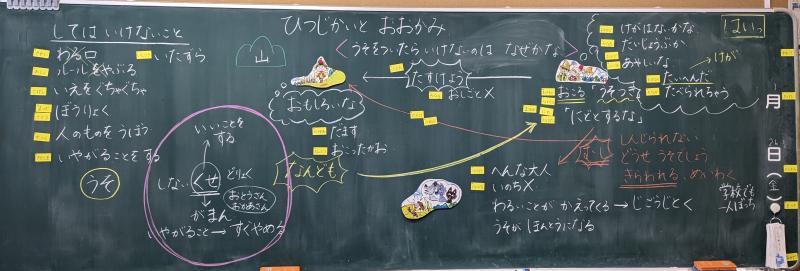 してはいけないこと
わる口
いたずら
ルールをやぶる
いえをぐちゃぐちゃ
ぼうりょく
人のものをうばう
いやがることをする
うそ
いいことをする
しない
くせ
どりょく
おとうさん
おかあさん
がまん
いやがること→すぐやめる
山
ひつじかいと おおかみ
<うそをついたらいけないのは なぜかな>
おもしろいな
だます
おこったかお
なんども
たすけよう
おしごと×
けがはないかな
だいじょうぶか
あやしいな
→けが
たいへんだ
たべられちゃう
おこる「うそつき」
「にどとするな」
しんじられない
どうせ うそでしょう
きらわれる、めいわく
へんな大人
いのち×
わるいことが かえってくる→じごうじとく
うそが ほんとうになる
学校でも
一人ぼっち
はいっ
月
日
(金)